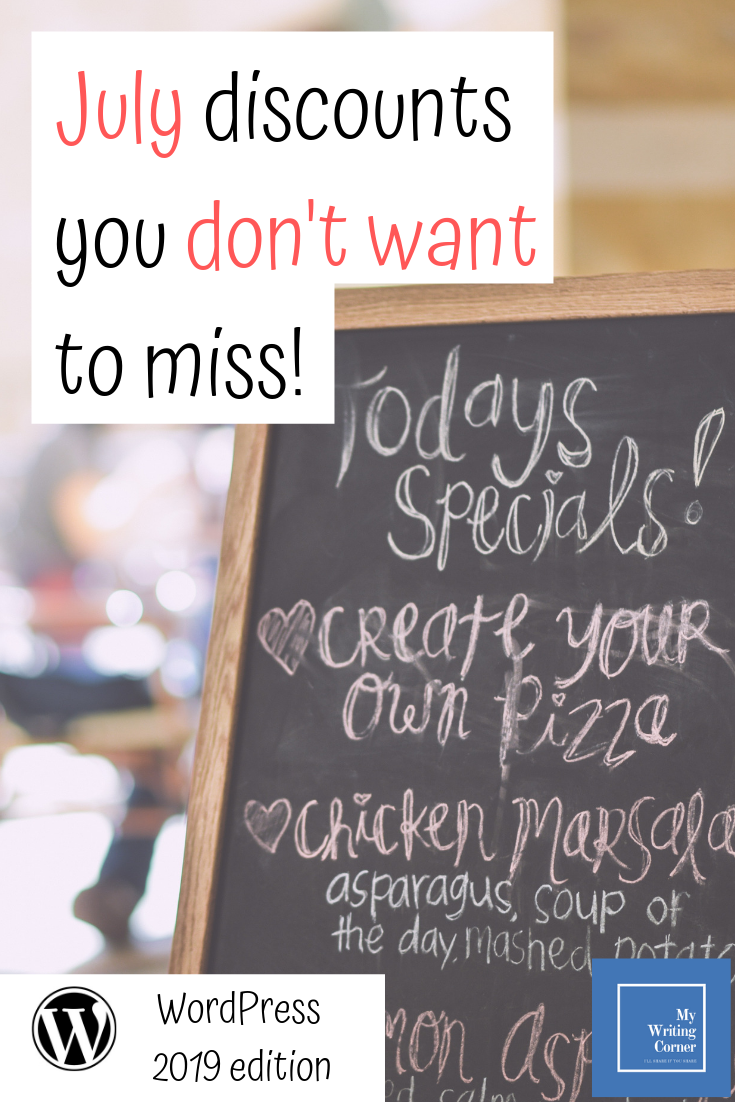 July discounts
you don't want
to miss!
Todays
Specials!
CREATE YOUR
OWN PIZZA
Chicken MARSALA
asparagus, soup of
the day, mashed potato
WordPress
2019 edition
My
Writing
Corner